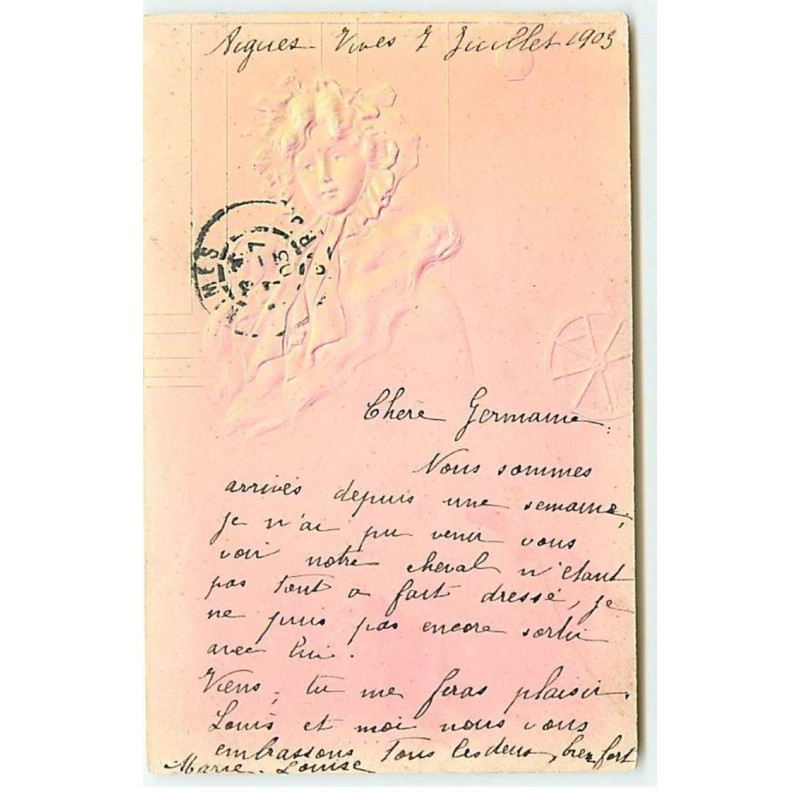 Aigues-Vives 7 Juillet 1903
NIMES
7
03
Chère Germaine.
Nous sommes
arrivés depuis une semaine,
je n'ai pu venir vous
voir notre cheval n'étant
pas tout a fait dressé, je
ne puis pas encore sortir
avec lui.
Viens, tu me feras plaisir.
Louis et moi nous vous
embrassons tous les deux, bien fort
Marie-Louise